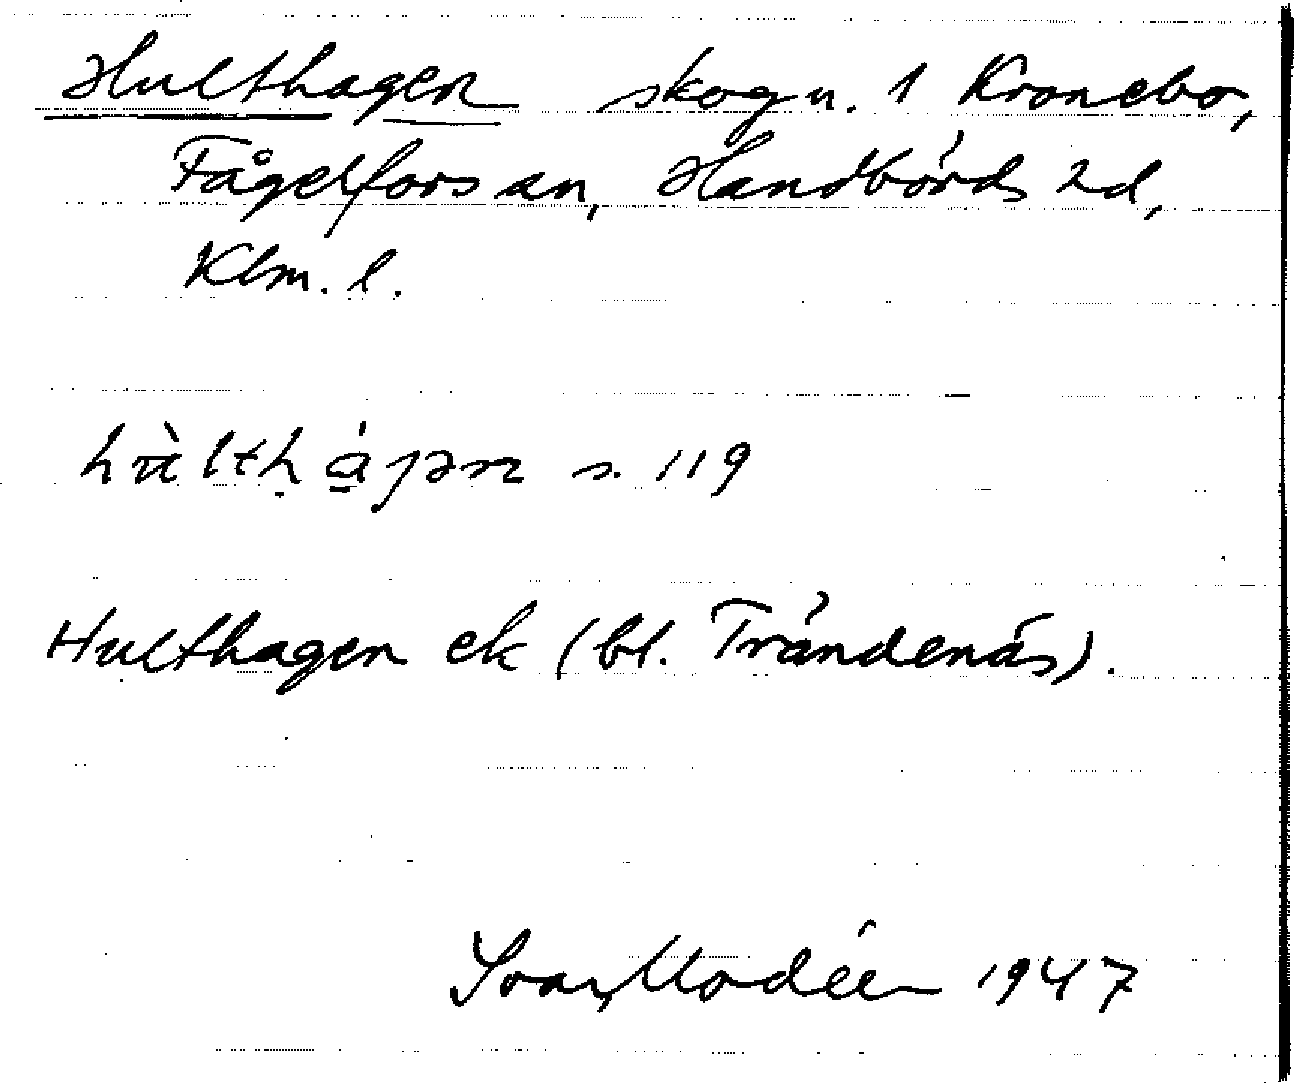 Hulthagen skogn. 1 Kronebo,
Fågelfors sn, Handbörds hd,
Klm. l.
hùlthá̱ɡən s. 119
Hulthagen ek (bl. Trändenäs).
Ivar Modéer 1947